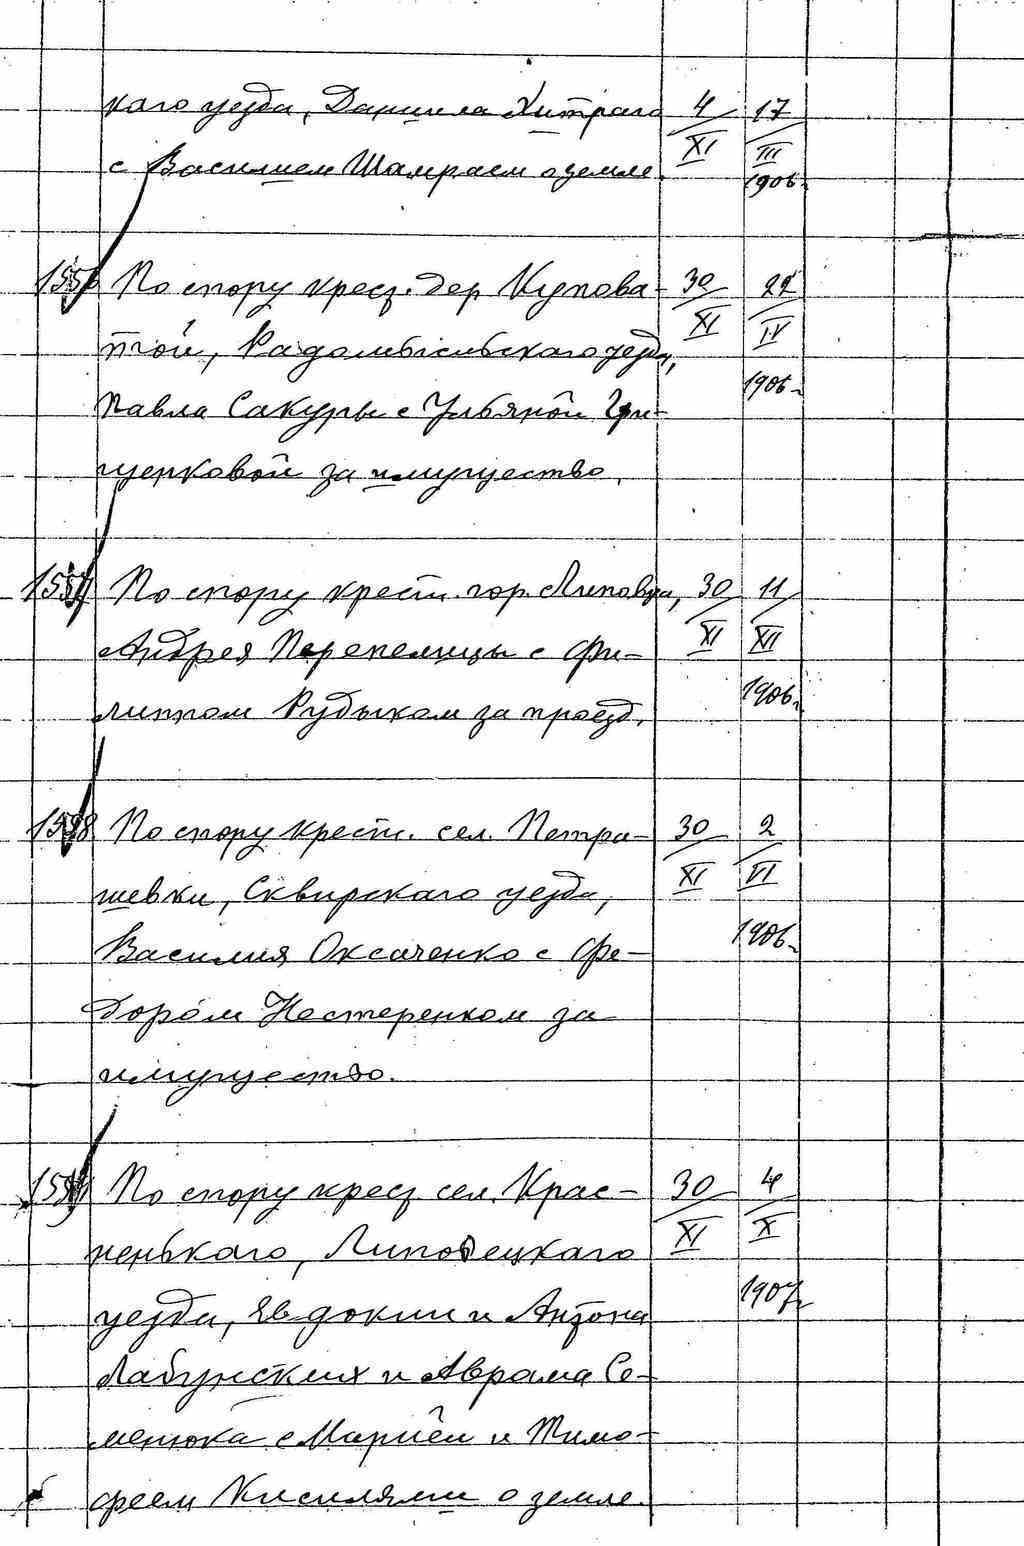 каго уезда, Даниила Хитраго 4/XI 17/III
с Василием Шамраем о земле. 1906 г.
1556 По спору крест. дер. Купова- 30/XI 22/IV
той, Радомысльскаго уезда,
Павла Сакуры с Ульяной Гри- 1906 г.
щенковой за имущество.
1557 По спору крест. гор. Липовца, 30/XI 11/XII
Андрея Перепелицы с Фи-
липпом Рудыком за проезд. 1906 г.
1558 По спору крест. сел. Петра- 30/XI 2/VI
шевки, Сквирскаго уезда,
Василия Оксаченко с Фе- 1906 г.
дором Нестеренком за
имущество.
1559 По спору крест. сел. Крас- 30/XI 4/X
ненькаго, Липовецкаго
уезда, Евдокии и Антона 1907 г.
Лабунских и Аврама Се-
менюка с Марией и Тимо-
феем Кисилями о земле.